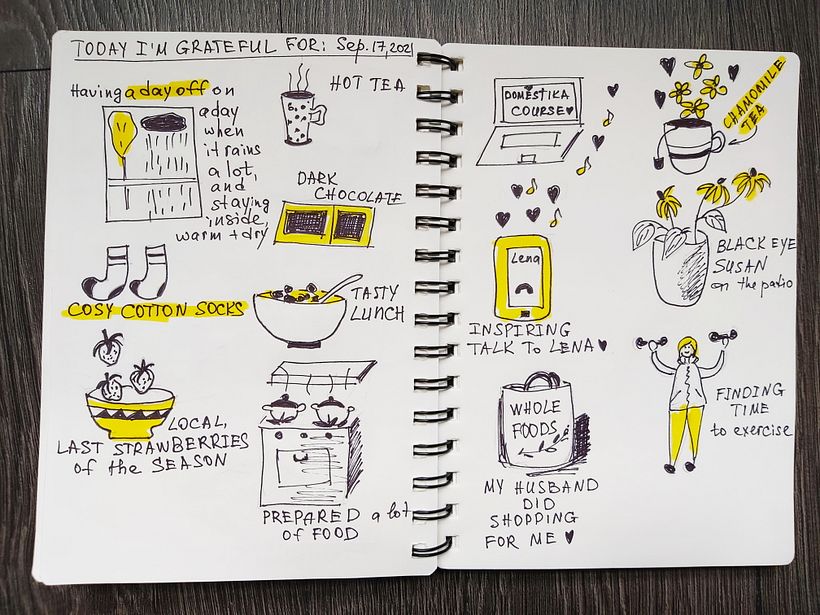 TODAY I'M GRATEFUL FOR: Sep. 17, 2021
Having a day off on
a day
when
it rains
a lot,
and
staying
inside,
warm + dry
HOT TEA
DARK
CHOCOLATE
COSY COTTON SOCKS
TASTY
LUNCH
LOCAL,
LAST STRAWBERRIES
of the SEASON
PREPARED a lot
of FOOD
DOMESTIKA
COURSE♥
CHAMOMILE
TEA
Lena
INSPIRING
TALK TO LENA♥
BLACK EYE
SUSAN
on the patio
WHOLE
FOODS
MY HUSBAND
DID
SHOPPING
FOR ME ♥
FINDING
TIME
to exercise